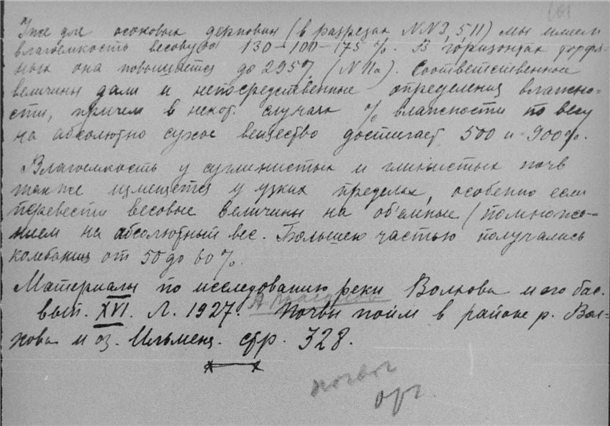 Уже для осоковых дерновин (в разрезах NN3, 5, 11) мы имеем
влагоемкость весовую 130–100–175%. В горизонтах торфя-
ных она повышается до 295% (N 11a). Соответственные
величины дали и непосредственные определения влажно-
сти, причем в некот. случаях % влажности по весу
на абсолютно сухое вещество достигает 500 и 900%.
Влагоемкость у суглинистых и глинистых почв
также изменяется в узких пределах, особенно если
перевести весовые величины на объемные (помноже-
нием на абсолютный вес. Большею частью получались
колебания от 50 до 60%.
Материалы по исследованию реки Волхова и его бас.
вып. XVI. Л. 1927. Почвы пойм в районе р. Вол-
хова и оз. Ильменя. стр. 328.
почвог
орг.